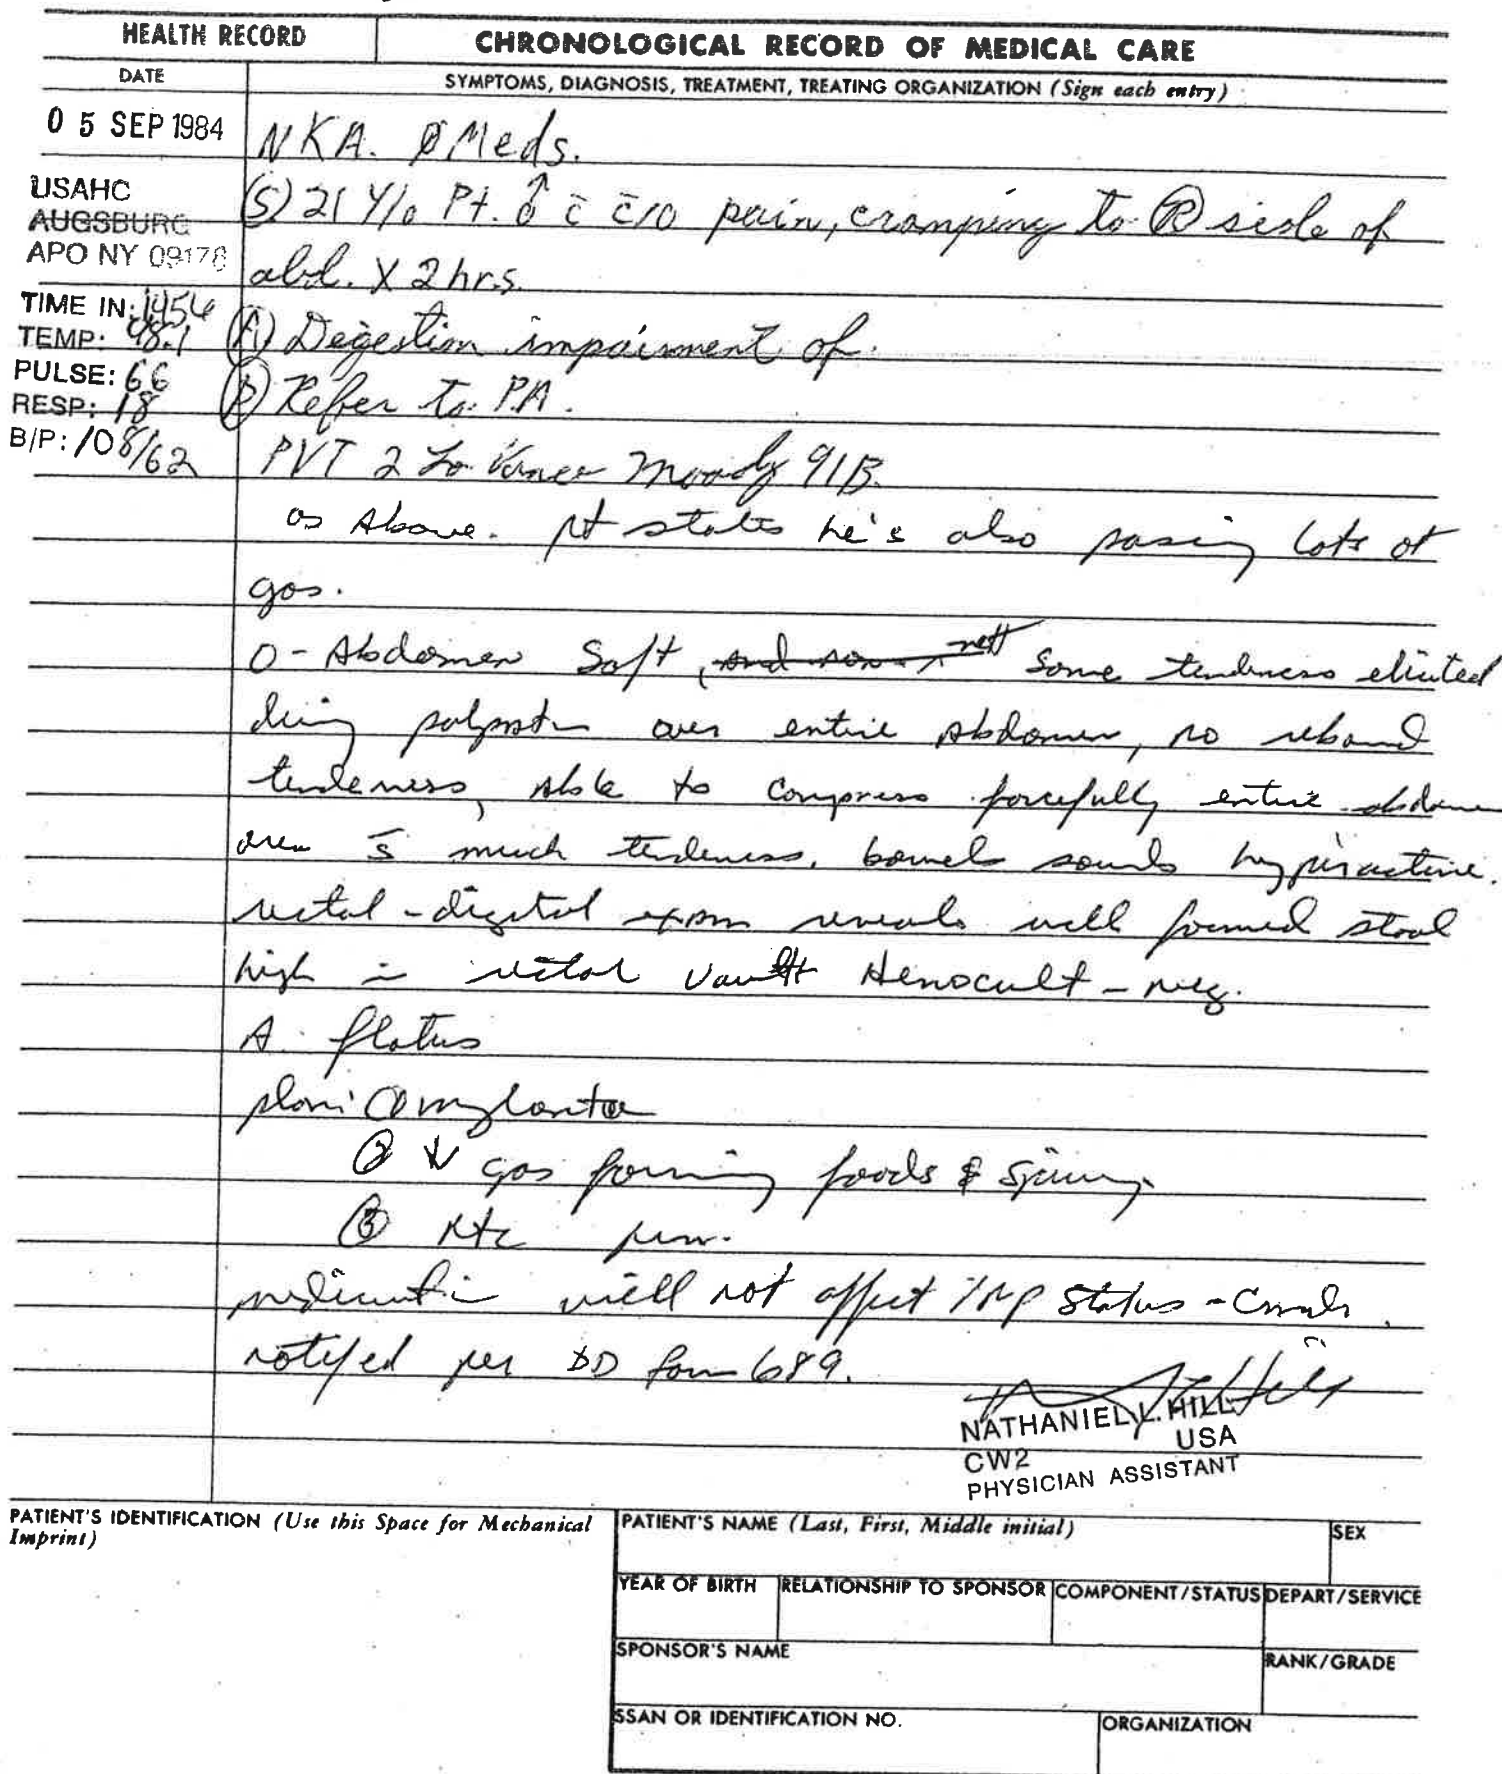 HEALTH RECORD
CHRONOLOGICAL RECORD OF MEDICAL CARE
DATE
SYMPTOMS, DIAGNOSIS, TREATMENT, TREATING ORGANIZATION (Sign each entry)
05 SEP 1984
NKA. ØMeds.
USAHC
AUGSBURG
APO NY 09178
(S) 21 Y/o Pt. ♂ c̄ c/o pain, cramping to Ⓡ side of
abd. X 2 hrs.
TIME IN: 1456
TEMP: 98.1
PULSE: 66
RESP: 18
B/P: 108/62
(A) Degestion impairment of.
(P) Refer to PA.
PVT 2 Moody 91B.
as Above. pt states he's also passing lots of
gas.
O - Abdomen Soft, some tenderness elicited
during palpation over entire Abdomen, no rebound
tenderness, Able to compress forcefully entire abdomen
area s̄ much tenderness. bowel sounds hyperactive.
rectal - digital exam reveals well formed stool
high in rectal vault Hemocult - neg.
A. flatus
plan: ① mylanta
② ↓ gas forming foods &
③ Rtc prn.
medication will not affect status - Cmdr
notifed per DD form 689.
NATHANIEL L. HILL
USA
CW2
PHYSICIAN ASSISTANT
PATIENT'S IDENTIFICATION (Use this Space for Mechanical
Imprint)
PATIENT'S NAME (Last, First, Middle initial)
SEX
YEAR OF BIRTH
RELATIONSHIP TO SPONSOR
COMPONENT/STATUS
DEPART/SERVICE
SPONSOR'S NAME
RANK/GRADE
SSAN OR IDENTIFICATION NO.
ORGANIZATION